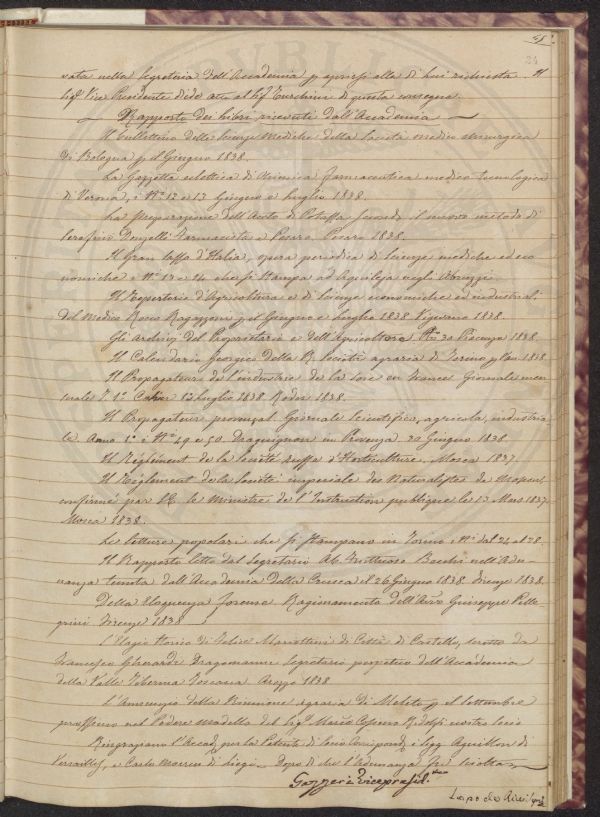 45.
24
vata nella Segreteria dell'Accademia p aprirsi alla di lui richiesta. Il
Sigr. Vice Presidente diede atto al Sigr. Turchini di questa consegna.
Rapporto dei Libri ricevuti dall'Accademia
Il Bullettino delle scienze mediche della Società medico chirurgica
di Bologna p il Giugno 1838.
La Gazzetta eclettica di Chimica farmaceutica medico tecnologica
di Verona, i Ni. 12 e 13 Giugno e Luglio 1838.
La preparazione dell'Aceto di Potassa secondo il nuovo metodo di
Serafino Donzelli Farmacista a Pesaro. Pesaro 1838.
Il Gran Sasso d'Italia, opera periodica di Scienze mediche ed eco
nomiche i Ni. 13 e 14 che si stampa ad Aquila negli Abruzzi.
Il Repertorio d'Agricoltura e di Scienze economiche ed industriali
del Medico Rocco Ragazzoni p il Giugno e Luglio 1838. Vigevano 1838.
Gli Archivj del Proprietario e dell'Agricoltore No. 30 Piacenza 1838.
Il Calendario Georgico della R. Società agraria di Torino p l'an. 1838
Il Propagateur de l'industrie de la soie en France Giornale men
suale T. 1o. Cahier 12 Luglio 1838. Rodez 1838.
Il Propagateur provençal Giornale Scientifico, agricola, industria
le. Anno 1o. i Ni. 49 e 50. Draguignan in Provenza 30 Giugno 1838.
Il Réglément de la Société russe d'Horticulture. Mosca 1837.
Il Réglement de la Société imperiale des Naturalistes de Moscou,
confirmé par S.E. le Ministre de l'Instruction publique le 13 Mars 1837
Mosca 1838.
Le letture popolari che si stampano in Torino i Ni. dal 24 al 28.
Il Rapporto letto dal Segretario Ab. Fruttuoso Becchi nell'Adu-
nanza tenuta dall'Accademia della Crusca il 26 Giugno 1838. Firenze 1838.
Della Eloquenza forense Ragionamento dell'Avvo. Giuseppe Pelle
grini Firenze 1838
L'Elogio storico di Felice Mariottini di Città di Castello, scritto da
Francesco Gherardi Dragomanni Segretario perpetuo dell'Accademia
della Valle Tiberina Toscana Arezzo 1838.
L'Annunzio della Riunione agraria di Meleto p il Settembre
prossimo nel Podere modello del Sigr. March. Cosimo Ridolfi nostro Socio
Ringraziano l'Accad. per la Patente di Socio Corrispond. i Sigg. Aguillon di
Versailles, e Carlo Morren di Liegi. Dopo di che l'Adunanza fu sciolta.
Gazzeri Vicepresid.te
Lapo de' Ricci